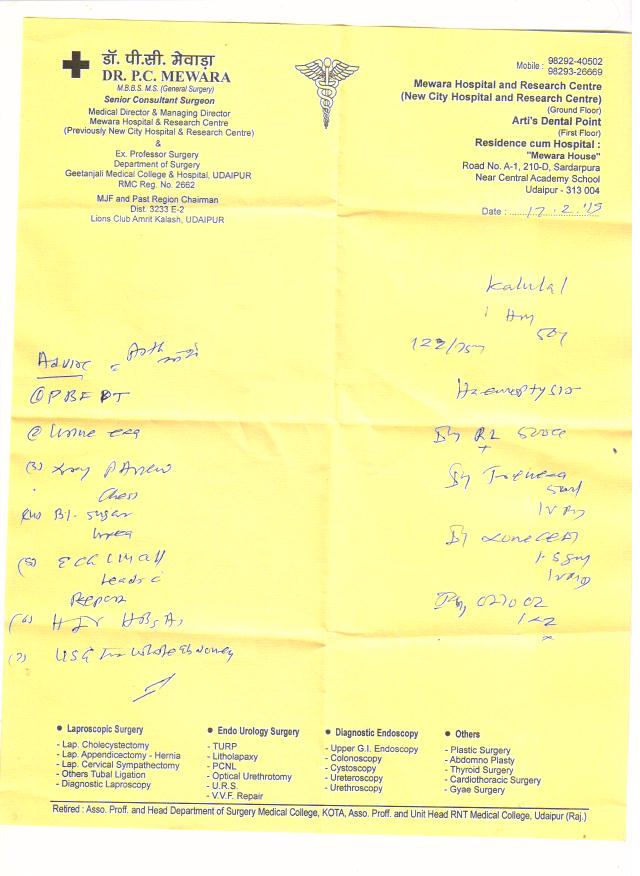 डॉ. पी.सी. मेवाड़ा
DR. P.C. MEWARA
M.B.B.S. M.S. (General Surgery)
Senior Consultant Surgeon
Medical Director & Managing Director
Mewara Hospital & Research Centre
(Previously New City Hospital & Research Centre)
&
Ex. Professor Surgery
Department of Surgery
Geetanjali Medical College & Hospital, UDAIPUR
RMC Reg. No. 2662
MJF and Past Region Chairman
Dist. 3233 E-2
Lions Club Amrit Kalash, UDAIPUR
Mobile : 98292-40502
98293-26669
Mewara Hospital and Research Centre
(New City Hospital and Research Centre)
(Ground Floor)
Arti's Dental Point
(First Floor)
Residence cum Hospital :
"Mewara House"
Road No. A-1, 210-D, Sardarpura
Near Central Academy School
Udaipur - 313 004
Date :
Kalulal
122/75
Haemoptysis
Advice
① PBF
② Urine
(3) Xray PA view
Chest
(4) Bl. Sugar
Urea
(5) ECG
Leads c
Report
(6) HIV HBsAg
(7) USG for whole abdomen
RL 500cc
+
• Laproscopic Surgery
- Lap. Cholecystectomy
- Lap. Appendicectomy - Hernia
- Lap. Cervical Sympathectomy
- Others Tubal Ligation
- Diagnostic Laproscopy
• Endo Urology Surgery
- TURP
- Litholapaxy
- PCNL
- Optical Urethrotomy
- U.R.S.
- V.V.F. Repair
• Diagnostic Endoscopy
- Upper G.I. Endoscopy
- Colonoscopy
- Cystoscopy
- Ureteroscopy
- Urethroscopy
• Others
- Plastic Surgery
- Abdomno Plasty
- Thyroid Surgery
- Cardiothoracic Surgery
- Gyae Surgery
Retired : Asso. Proff. and Head Department of Surgery Medical College, KOTA, Asso. Proff. and Unit Head RNT Medical College, Udaipur (Raj.)